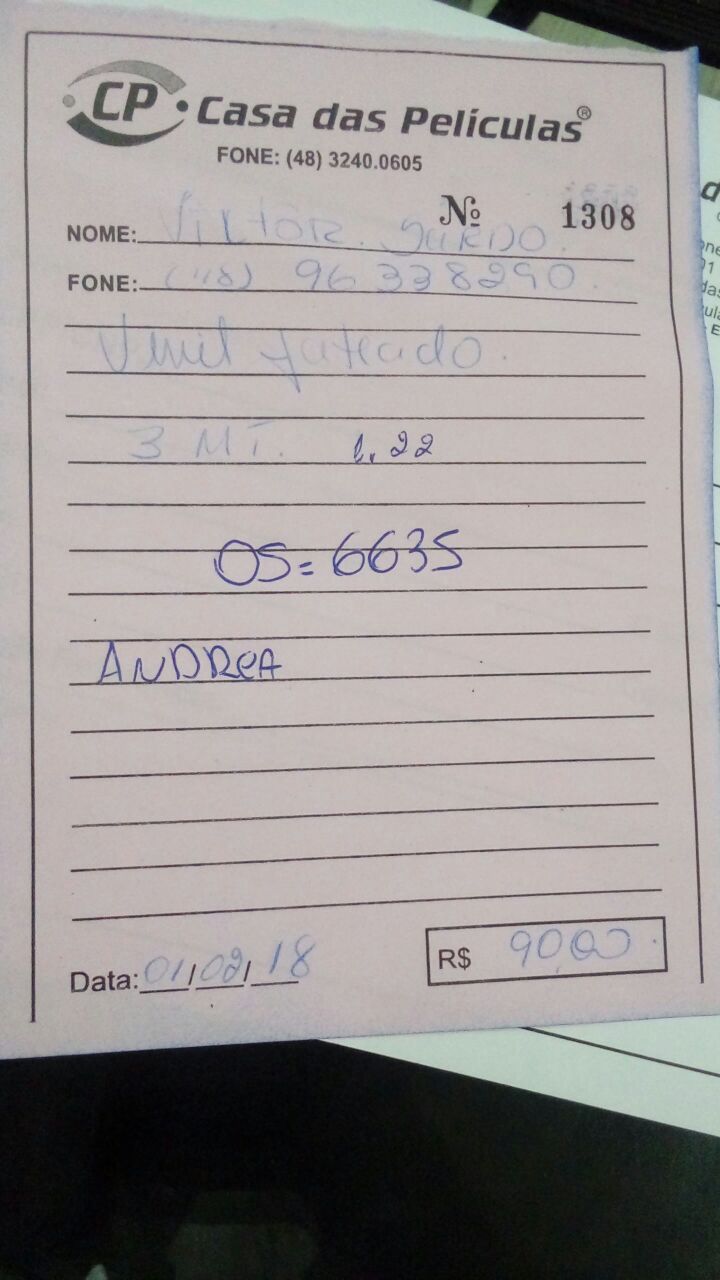 CP Casa das Películas®
FONE: (48) 3240.0605
Nº 1308
NOME: VILTOR.
FONE: (48) 96 338290.
Vinil Jateado.
3 MT. 1.22
OS= 6635
ANDREA
Data: 01/02/18 R$ 90,00